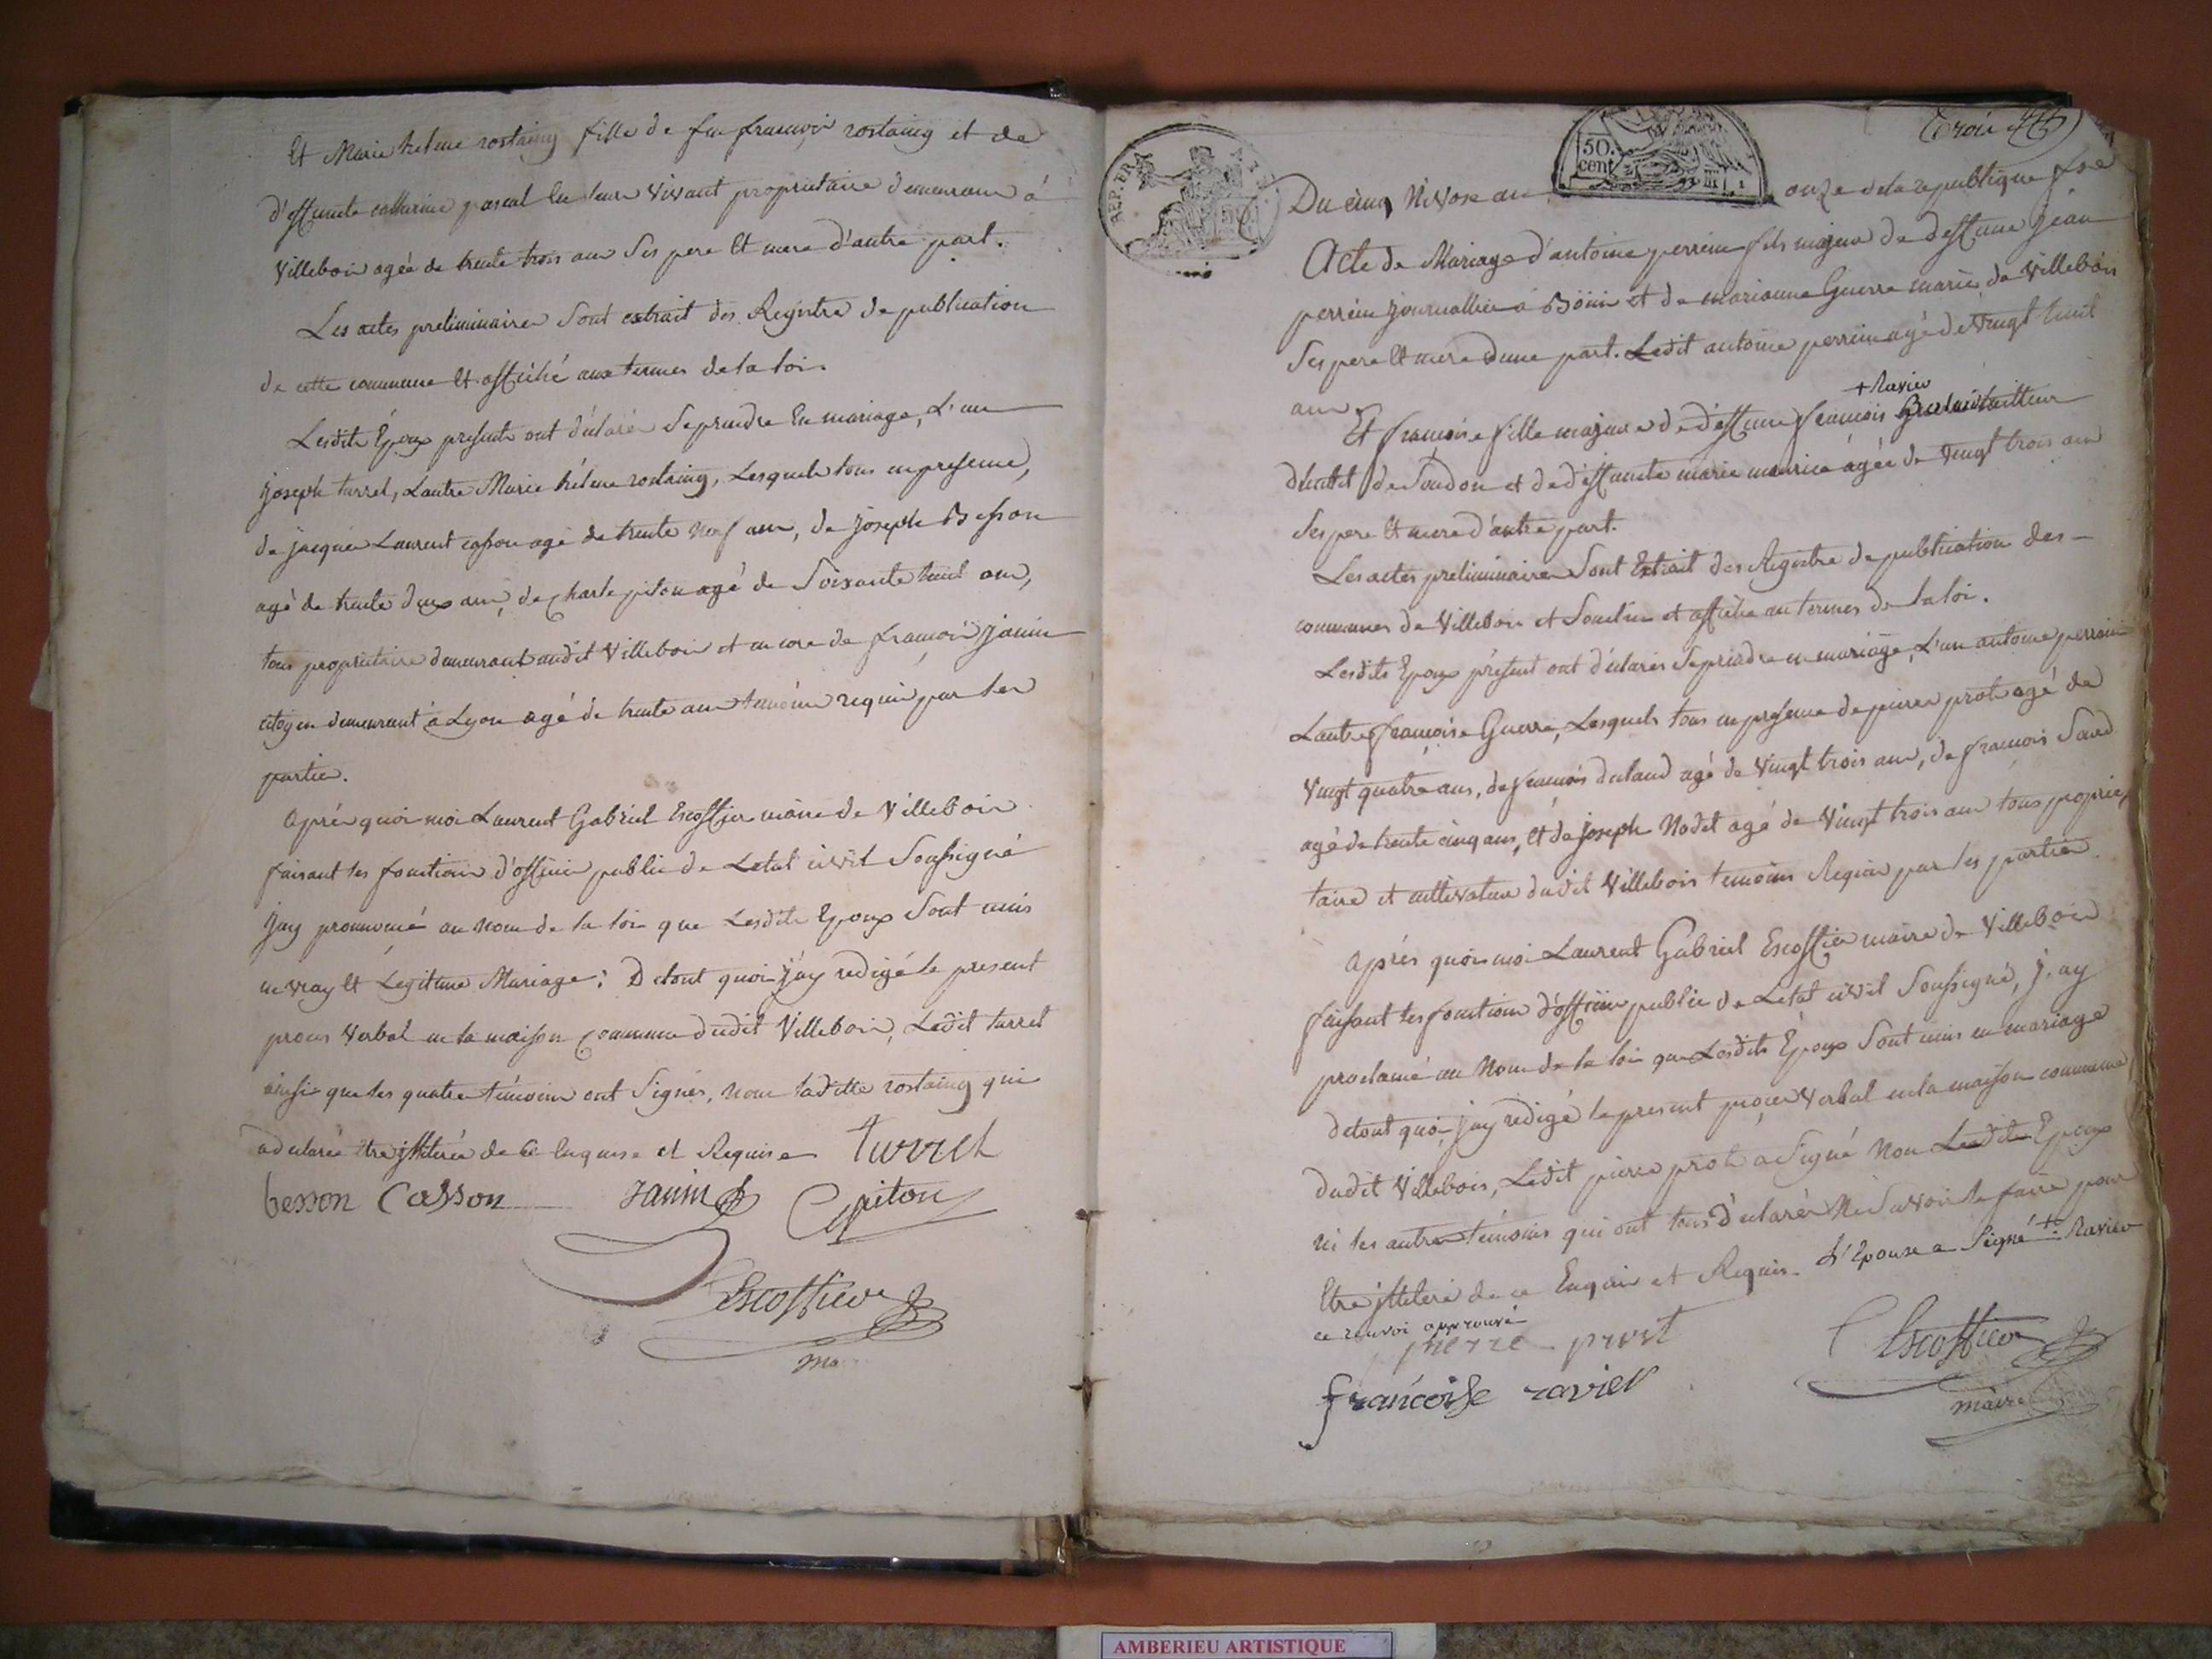 Et Marie helene rostaing fille de feu françois rostaing et de
d'effuncte catherine pascal en leur Vivant proprietaire demeurant á
Villebois agée de trente trois ans Ses pere Et mere d'autre part.
Les actes preliminaires Sont extrait des Registre de publication
de cette commune Et affiché aux termes de la loi.
Lesdits Epoux presents ont déclaré Se prendre En mariage, L'un
joseph turrel, Lautre Marie hélene rostaing, Lesquels tous en presence,
de jacques Laurent casson agé de trente neuf ans, de joseph Besson
agé de trente deux ans, de charle piton agé de Soixante huit ans,
tous proprietaire demeurant audit Villebois et encore de françois janin
citoyen demeurant á Lyon agé de trente ans témoins requis par les
parties.
Après quoi moi Laurent Gabriel Escoffier maire de Villebois
faisant les fonctions d'officier public de Letat civil Soussigné
jay prononcé au nom de la loi que Lesdits Epoux Sont unis
en vray Et Legitime Mariage; De tout quoi j'ay redigé le present
procès Verbal en la maison Commune dudit Villebois, Ledit turrel
ainsi que les quatre témoins ont Signés, non ladite rostaing qui
a déclaré être jlliterée de ce Enquise et Requise turrel
besson Casson Janin Cpiton
Escoffier
ma
Trois
REP. FRA
50. cent
Du cinq Nivose an onze de la republique fse
Acte de Mariage d'antoine perrein fils majeur de deffunc jean
perrein journallier á Bönin et de marianne Guerre mariés de Villebois
Ses pere Et mere d'une part. Ledit antoine perrein agé de vingt huit
ans.
+ Ravier
Et françoise fille majeure de d'effunc françois tailleur
de Soudon et de d'effuncte marie maurice agée de vingt trois ans
Ses pere Et mere d'autre part.
Les actes préliminaires Sont Extrait des Registre de publication des
communes de Villebois et et affiché au termes de la loi.
Lesdits Epoux présent ont déclarés Se prendre en mariage, L'un antoine perrein
Lautre françoise Guerre, Lesquels tous en presence de pierre prost agé de
Vingt quatre ans, de françois duland agé de Vingt trois ans, de françois
agé de trente cinq ans, et de joseph Nodet agé de Vingt trois ans tous proprié
taire et cultivateur dudit Villebois témoins Requis par les parties
Après quoi moi Laurent Gabriel Escoffier maire de Villebois
faisant les fonctions d'officier public de Letat civil Soussigné, j'ay
proclamé au Nom de la loi que Lesdits Epoux Sont unis en mariage
de tout quoi jay redigé le present procès Verbal en la maison commune
dudit Villebois, Ledit pierre prost a Signé Non Lesdits Epoux
ni les autres témoins qui ont tous déclarés Ne Savoir le faire pour
être jlliteré de ce Enquis et Requis. L'Epouse a Signé + Ravier
ce renvoi approuvé
pierre prost Escoffier
françoise ravier maire
AMBERIEU ARTISTIQUE